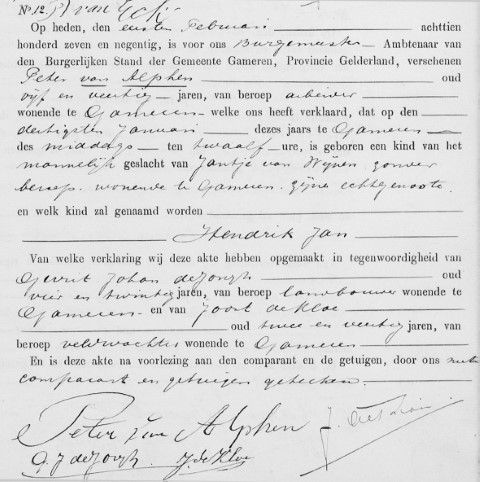 No 12.
Op heden, den eersten Februari achttien
honderd zeven en negentig, is voor ons Burgemeester Ambtenaar
van den Burgerlijken Stand der Gemeente Gameren, Provincie Gelderland, verschenen
Peter van Alphen oud
vijf en veertig jaren, van beroep arbeider
wonende te Gameren welke ons heeft verklaard, dat op den
dertigsten Januari dezes jaars te Gameren
des middags ten twaalf ure, is geboren een kind van het
mannelijk geslacht van Jantje van Wijnen, zonder
beroep, wonende te Gameren, zijne echtgenoote
en welk kind zal genaamd worden
Hendrik Jan
Van welke verklaring wij deze akte hebben opgemaakt in tegenwoordigheid van
Gerrit Johan de Jongh oud
vier en twintig jaren, van beroep landbouwer wonende te
Gameren en van Joost de Kloe
oud twee en veertig jaren, van
beroep veldwachter wonende te Gameren
En is deze akte na voorlezing aan den comparant en de getuigen, door ons met
comparant en getuigen geteekend.
Peter van Alphen
G. J de Jongh J. de Kloe